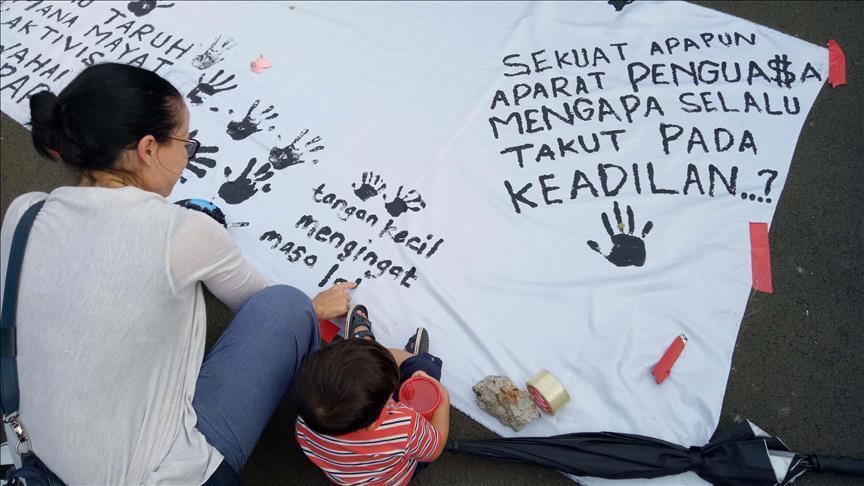 TARUH
MANA MAYAT
AKTIVIS
WAHAI
SEKUAT APAPUN
APARAT PENGUA$A
MENGAPA SELALU
TAKUT PADA
KEADILAN....?
tangan kecil
mengingat
masa